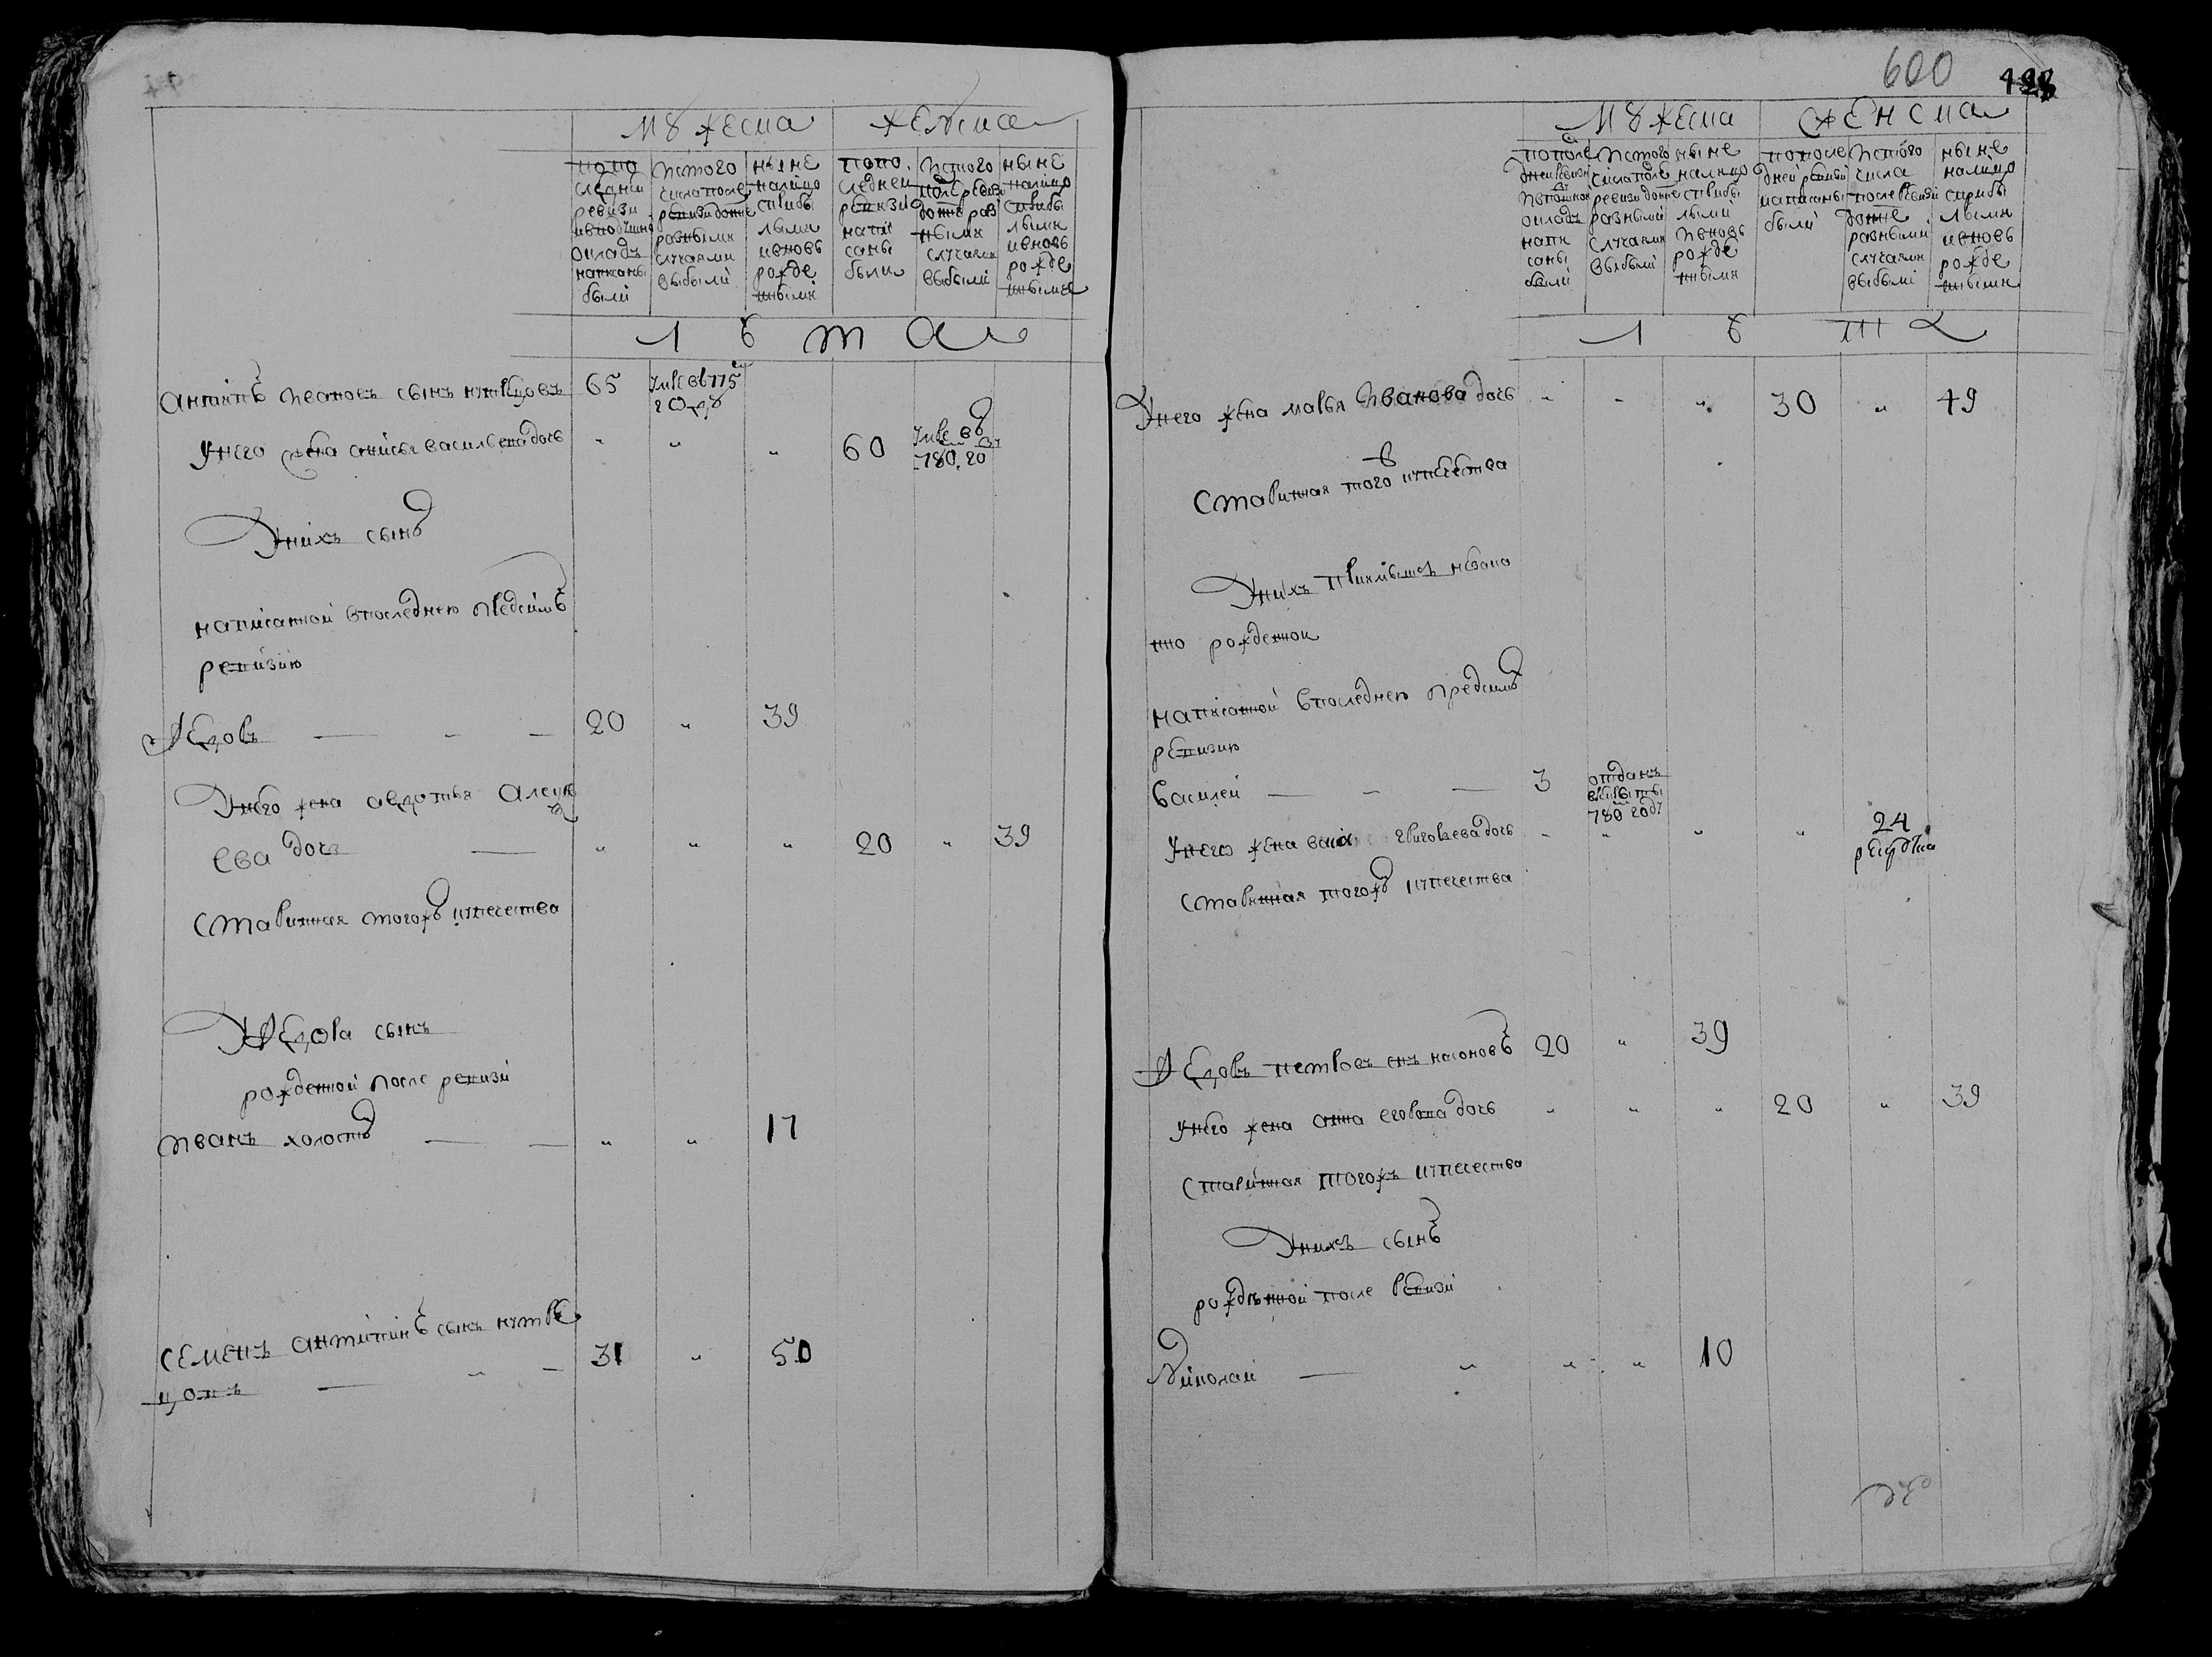 мужеска женска
попо
следнеи
ревизи
и в подушно
окладъ
написаны
были
ис того
числа после
ревизи до ние
разными
случаями
выбыли
ныне
налицо
с прибы
лыми
и вновь
рожде
нными
попо
следнеи
ревизи
напи
саны
были
ис того
после ревизи
до ние раз
ными
случаями
выбыли
ныне
налицо
с прибы
лыми
и вновь
рожде
нными
лѣта
антипъ ивановъ сынъ 65 умре в 775
году
у него жена васильева дочь „ „ „ 60 умре въ
780 го
у них сынъ
написанной в последнею пред симъ
ревизию
Федоръ 20 „ 39
у него жена авдотья алек
ева дочь „ „ „ 20 „ 39
старинная тогожъ купечества
у Федора сынъ
рожденной после ревизи
иванъ холостъ „ „ 17
семенъ антипинъ сынъ кутве
цовъ 31 „ 50
600
мужеска женска
по после
дней ревизи
и в подушной
окладъ
напи
саны
были
ис того
числа после
ревизи до ние
разными
случаями
выбыли
ныне
налицо
с прибы
лыми
и вновь
рожде
нными
по после
дней ревизи
написаны
были
ис того
числа
после ревизи
до ние
разными
случаями
выбыли
ныне
налицо
с прибы
лыми
и вновь
рожде
нными
лѣта
у него жена марья иванова дочь „ „ „ 30 „ 49
старинная того ж купечества
у них приимышъ незако
нно рожденои
написанной в последнею пред симъ
ревизию
василей 3 отданъ
в рекруты
780 году
у него жена григорьева дочь „ „ „ „ 24
старинная тогожъ купечества
Федоръ петровъ снъ 20 „ 39
у него жена анна егорова дочь „ „ „ 20 „ 39
старинная тогожъ купечества
у нихъ сынъ
рожденной после ревизи
Николай „ „ „ 10